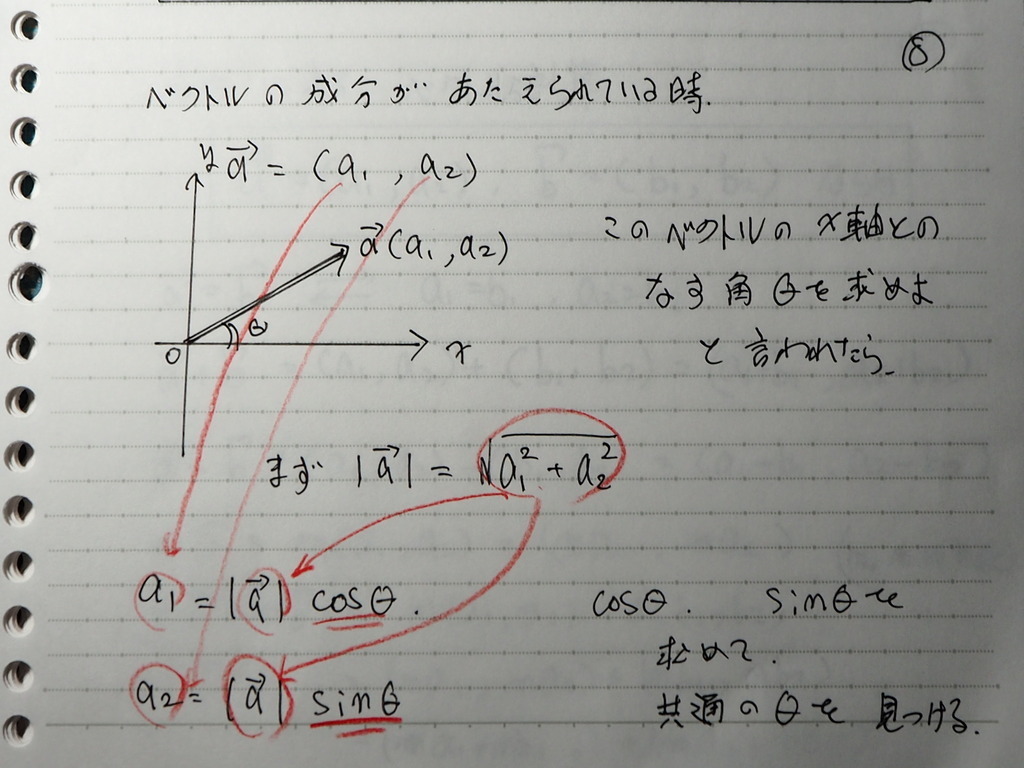 ⑧
ベクトルの成分が あたえられている時.
y a⃗ = (a₁, a₂)
a⃗(a₁, a₂)
θ
O
x
このベクトルのx軸との
なす角θを求めよ
と言われたら
まず |a⃗| = √(a₁² + a₂²)
a₁ = |a⃗| cosθ.
a₂ = |a⃗| sinθ
cosθ. sinθを
求めて.
共通のθを見つける.